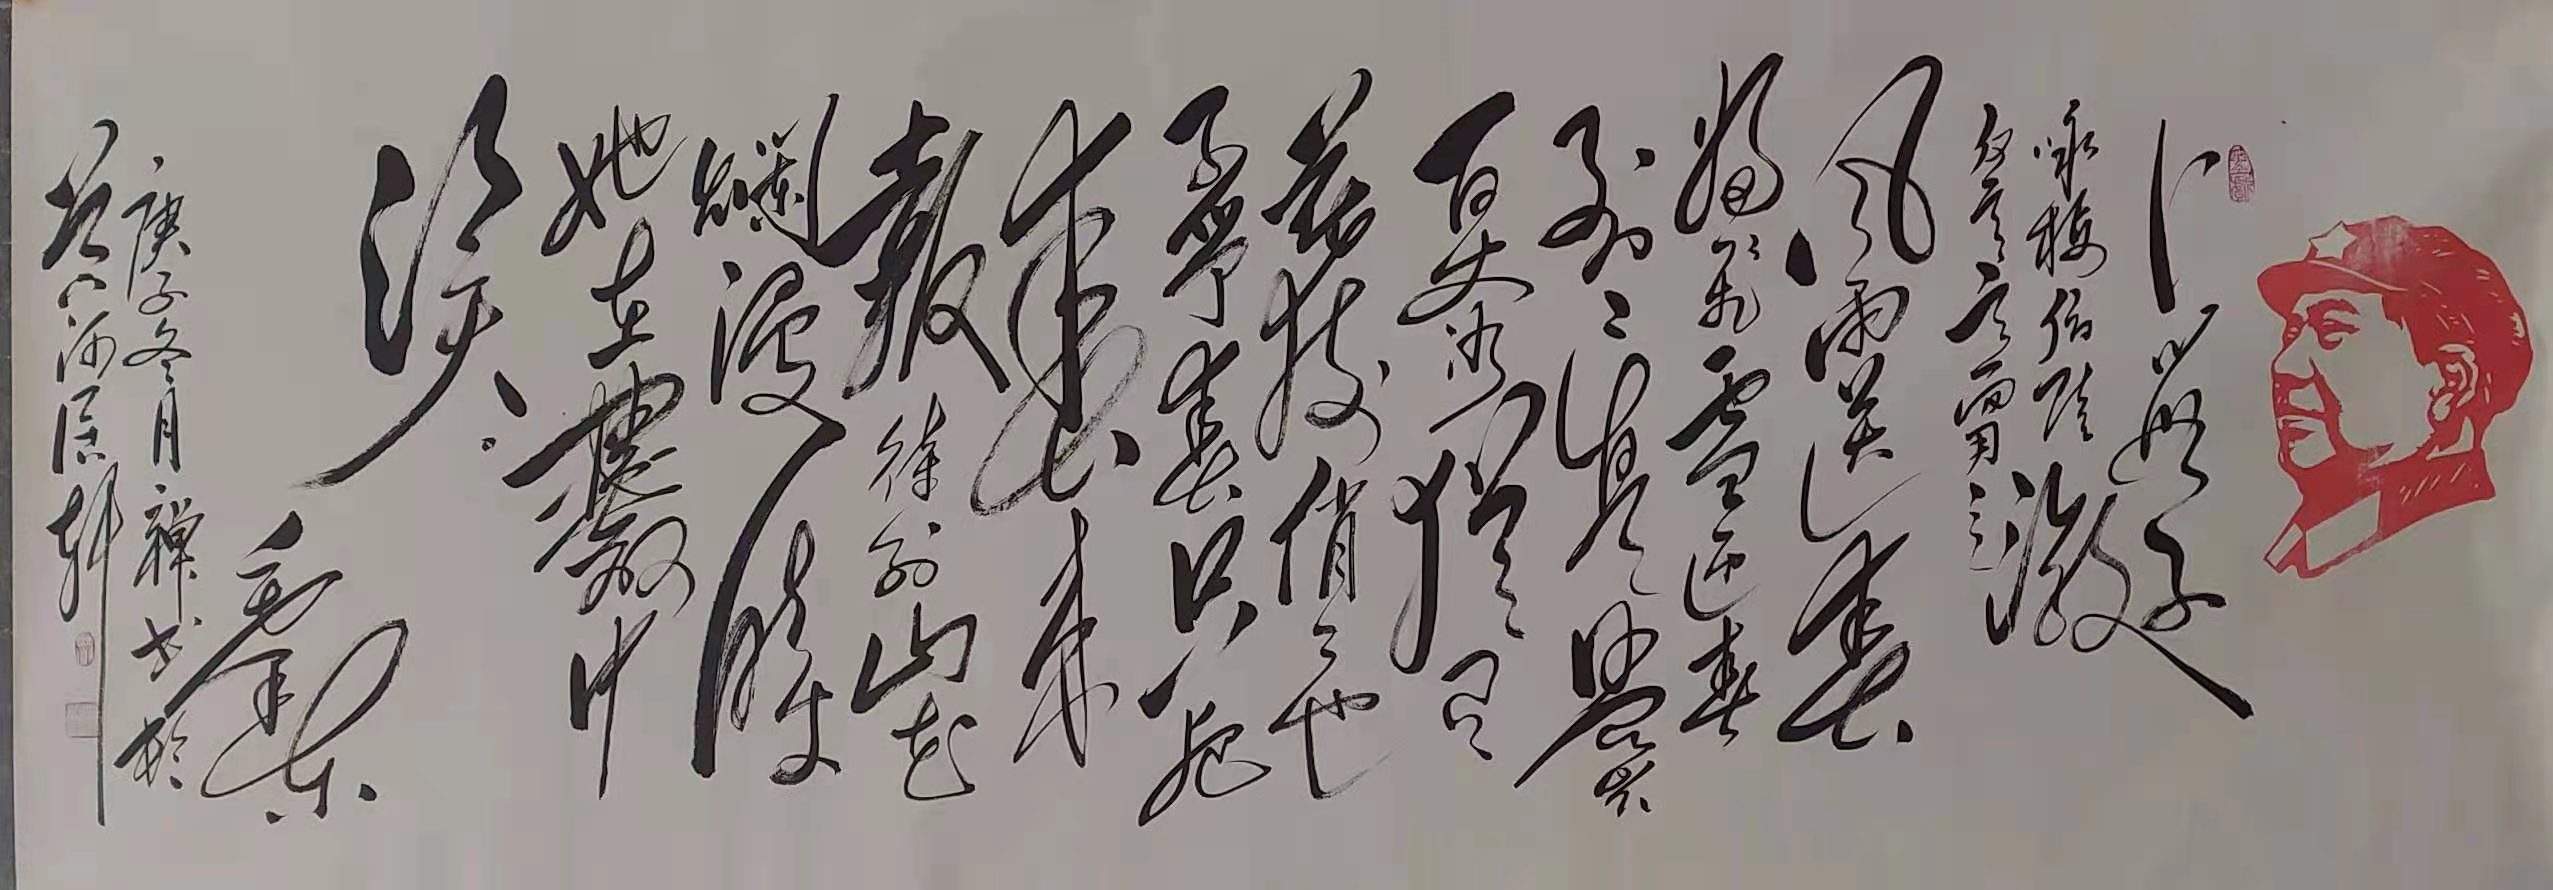 卜算子
咏梅
反其意而用之
风雨送春
归飞雪迎春
到已是悬崖
百丈冰犹有
花枝俏俏也
不争春只把
春来
报待到山花
烂漫时
她在丛中
笑
毛泽东
庚子冬月禅书於
河居轩